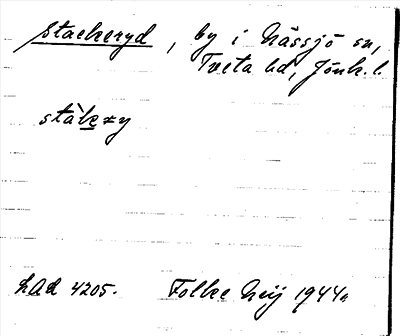 Stackeryd, by i Nässjö sn,
Tveta hd, Jönk. l.
LAd 4205. Folke Heij 1944.